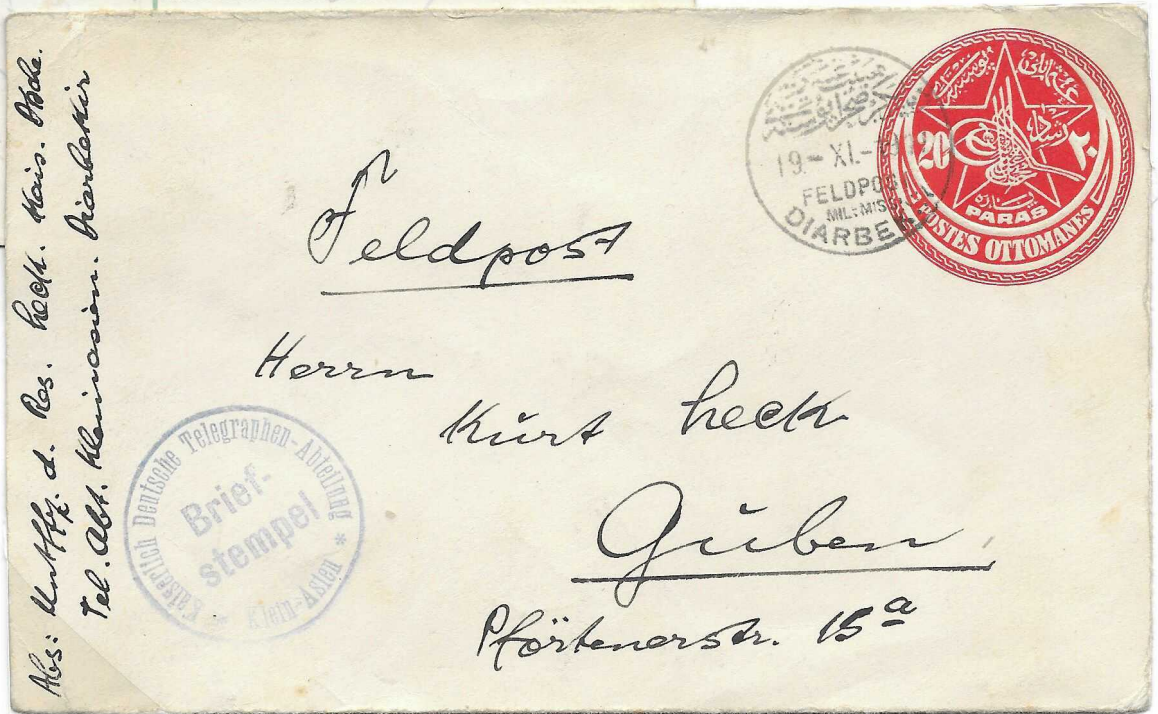 Abs: Untffz. d. Res. Heck. Kais. Dtsche.
Tel. Abt. Kleinasien. Diarbekir
19.-XI.-
FELDPOST
MIL: MISS
DIARBEKIR
20
٢٠
PARAS
POSTES OTTOMANES
Feldpost
Herrn
Kurt Heck
Guben
Pförtenerstr. 15a
Kaiserlich Deutsche Telegraphen-Abteilung
Brief-
stempel
* Klein-Asien *